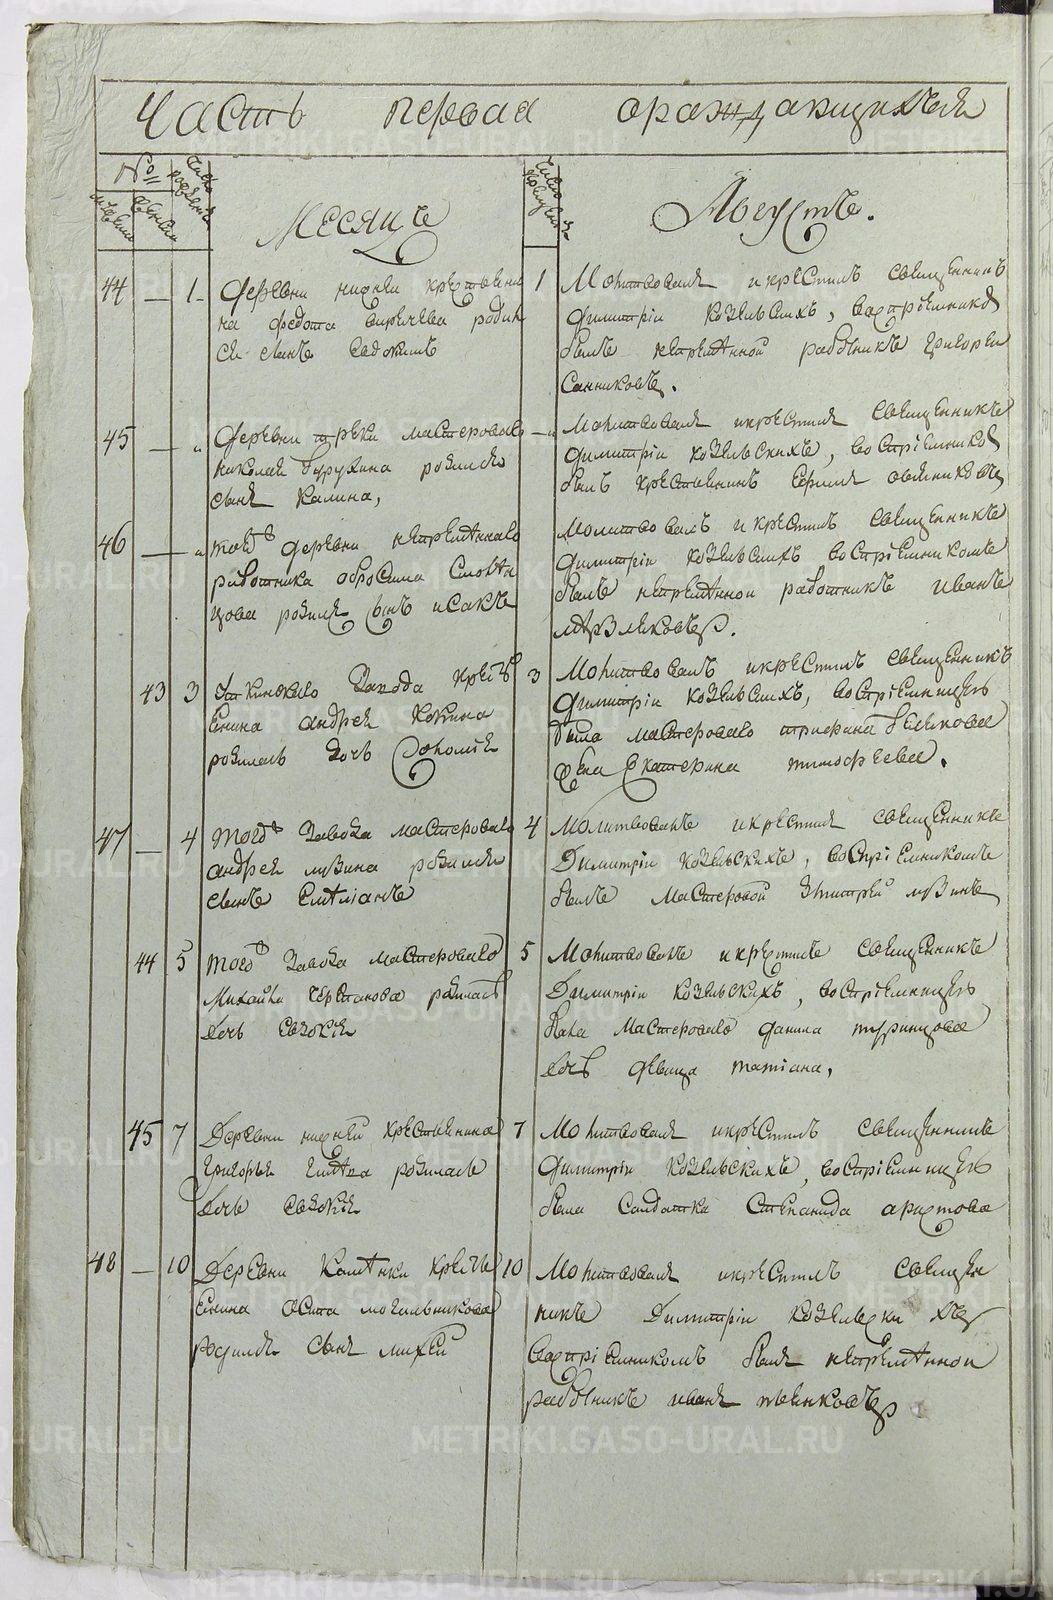 Часть первая ораждающихся
№
Месяцъ
Августъ.
44 — 1 Деревни нижней крестьяни
на Федота родил
ся сынъ Евдокимъ
1 Молитвовалъ и крестилъ священникъ
Димитрiй Козельскихъ, восприемникомъ
былъ непременной работникъ Григорей
Санниковъ.
45 — „ Деревни мастероваго
Николая родился
сынъ Калина,
— „ Молитвовалъ и крестилъ священникъ
Димитрiй Козельскихъ, восприемникомъ
былъ крестьянинъ
46 — „ той деревни непременнаго
работника
родился сынъ Исакъ
Молитвовалъ и крестилъ священникъ
Димитрiй Козельскихъ восприемникомъ
былъ непременной работникъ Иванъ
43 3 Уткинскаго Завода крестъ
янина Андрея Кокина
родилась дочь Соломiя
3 Молитвовалъ и крестилъ священникъ
Димитрiй Козельскихъ, восприемницею
была мастероваго Трифана Беликова
жена Екатерина Тимофеева.
47 — 4 того Завода мастероваго
Андрея Музина родился
сынъ Емелiанъ
4 Молитвовалъ и крестилъ священникъ
Димитрiй Козельскихъ, восприемникомъ
былъ мастеровой Дмитрей Музинъ
44 5 того Завода мастероваго
Михайла Черепанова родилась
дочь Евдокiя
5 Молитвовалъ и крестилъ священникъ
Димитрiй Козельскихъ, восприемницею
была мастероваго Данила Туринцова
дочь девица Татiана,
45 7 Деревни нижней крестьянина
Григорья родилась
дочь Евдокiя
7 Молитвовалъ и крестилъ священникъ
Димитрiй Козельскихъ, восприемницею
была солдатка Степанида Аристова
48 — 10 Деревни Каменки кресть
янина Осипа Могильникова
родился сынъ Михей
10 Молитвовалъ и крестилъ священ
никъ Димитрiй Козельскихъ
восприемникомъ былъ непременной
работникъ Иванъ Пьянковъ
METRIKI.GASO-URAL.RU